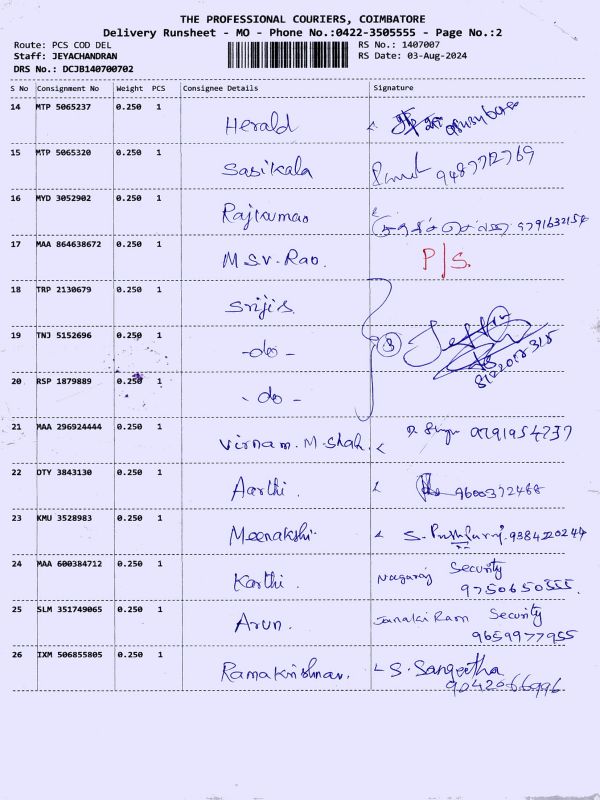 THE PROFESSIONAL COURIERS, COIMBATORE
Delivery Runsheet - MO - Phone No.:0422-3505555 - Page No.:2
Route: PCS COD DEL RS No.: 1407007
Staff: JEYACHANDRAN RS Date: 03-Aug-2024
DRS No.: DCJB140700702
S No Consignment No Weight PCS Consignee Details Signature
14 MTP 5065237 0.250 1
Herald
15 MTP 5065320 0.250 1
Sasikala
16 MYD 3052902 0.250 1
Rajkumar 9791632154
17 MAA 864638672 0.250 1
M.S.V. Rao. P/S.
18 TRP 2130679 0.250 1
Srijis
19 TNJ 5152696 0.250 1
-do- 3
20 RSP 1879889 0.250 1
-do-
21 MAA 296924444 0.250 1
Virnam. M. Shah.
22 OTY 3843130 0.250 1
Aarthi. 9600372468
23 KMU 3528983 0.250 1
Meenakshi. 9384220244
24 MAA 600384712 0.250 1
Karthi. Nagaraj Security
9750650555.
25 SLM 351749065 0.250 1
Arun. Janaki Ram Security
9659977955
26 IXM 506855805 0.250 1
Ramakrishnan. S. Sangeetha
9042066996